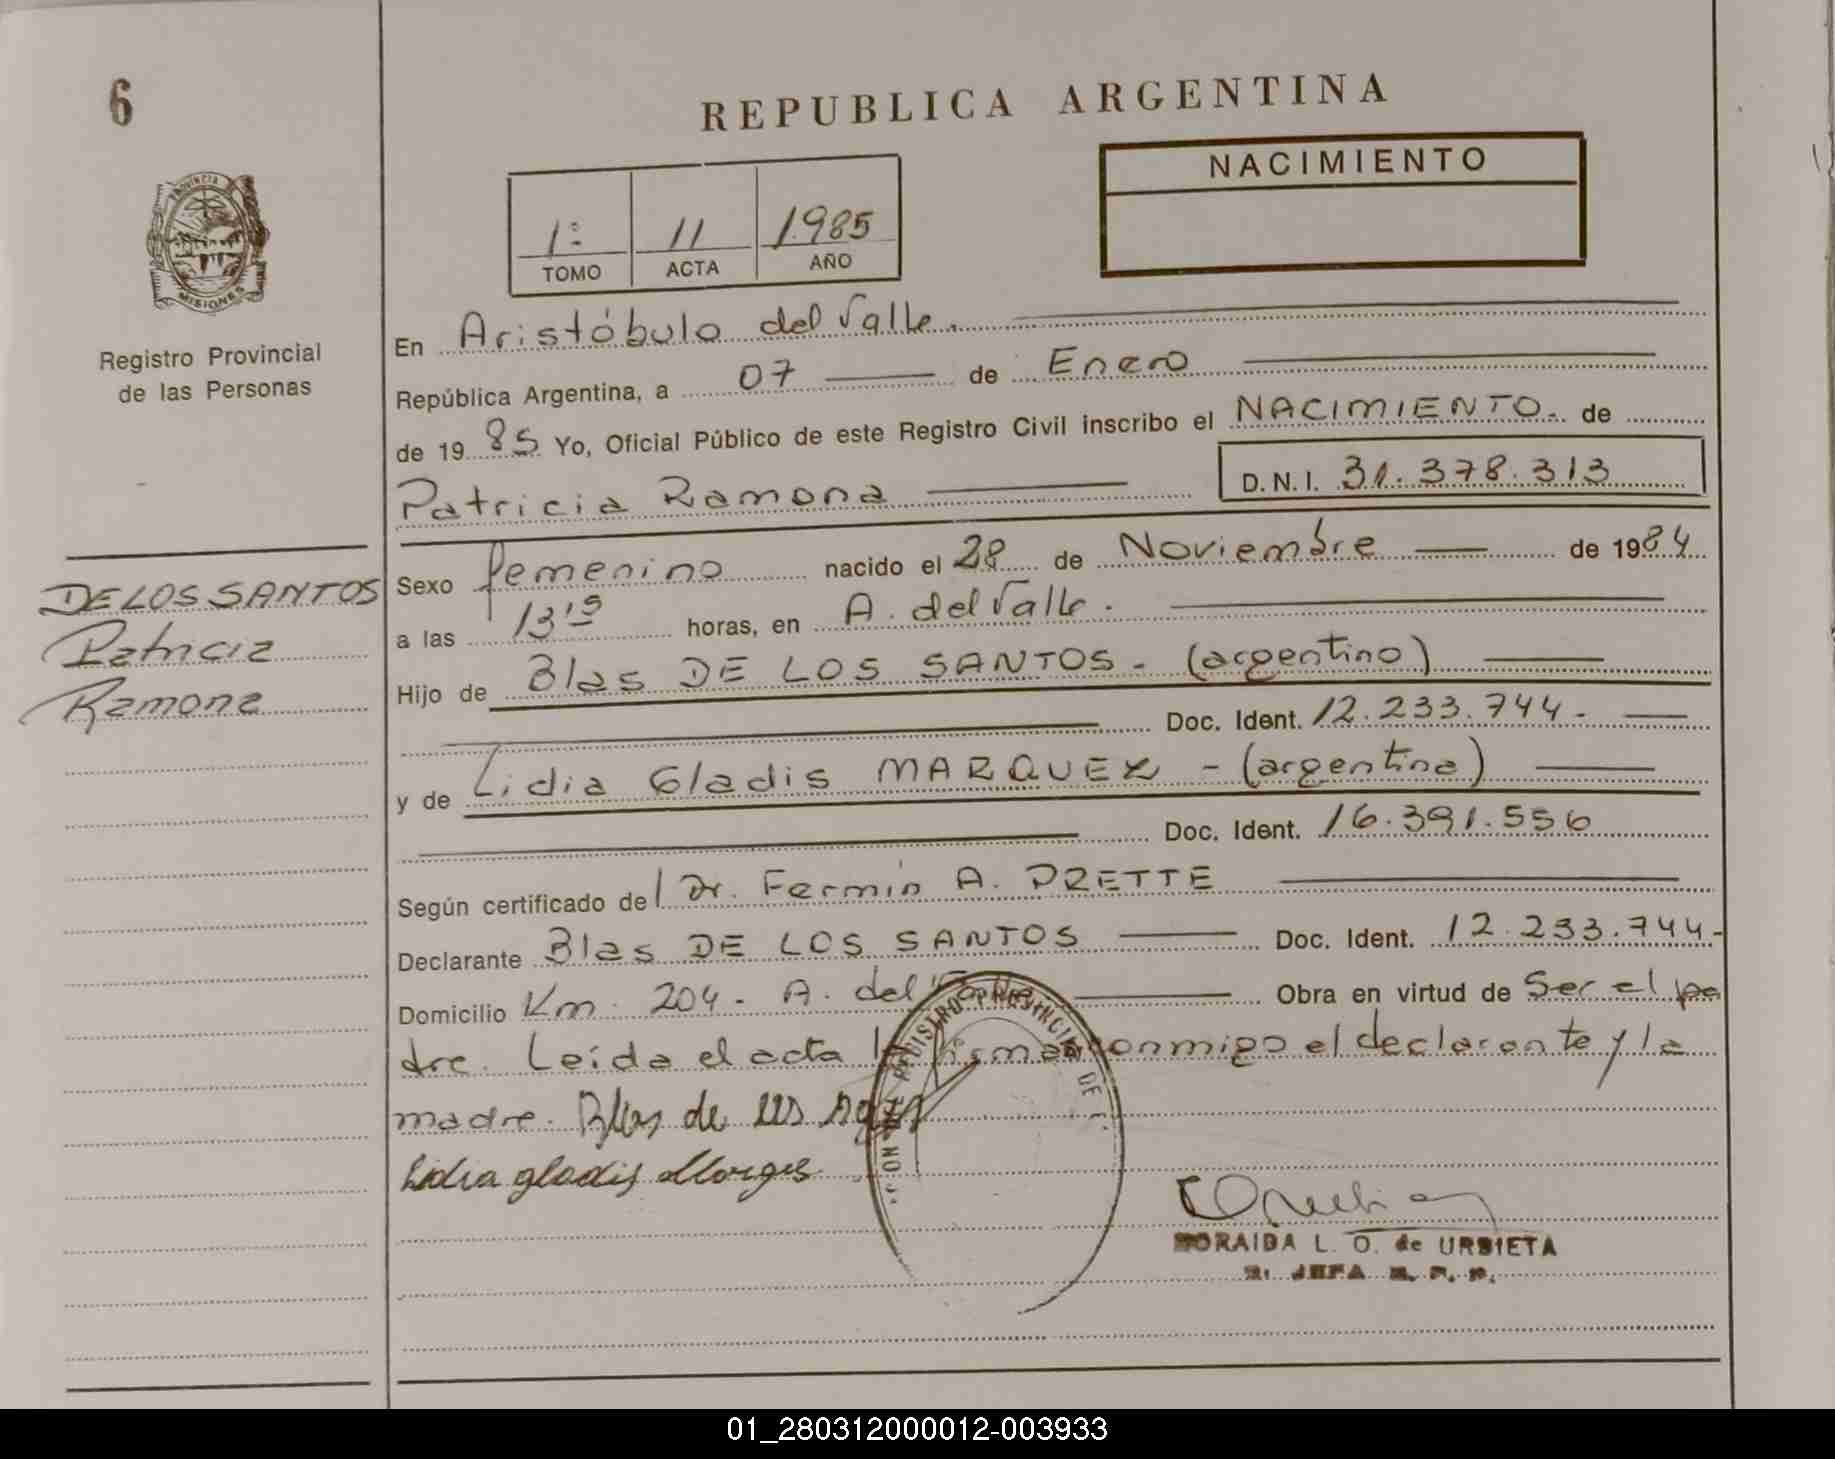 6
REPUBLICA ARGENTINA
NACIMIENTO
1º 11 1985
TOMO ACTA AÑO
PROVINCIA DE
MISIONES
Registro Provincial
de las Personas
En Aristóbulo del Valle.
República Argentina, a 07 de Enero
de 1985 Yo, Oficial Público de este Registro Civil inscribo el NACIMIENTO. de
Patricia Ramona D.N.I. 31.378.313
DE LOS SANTOS
Patricia
Ramona
Sexo femenino nacido el 28 de Noviembre de 1984
a las 13,15 horas, en A. del Valle.
Hijo de Blas DE LOS SANTOS - (argentino)
Doc. Ident. 12.233.744.
y de Lidia Gladis MARQUEZ - (argentina)
Doc. Ident. 16.391.556
Según certificado de Dr. Fermín A. PRETTE
Declarante Blas DE LOS SANTOS Doc. Ident. 12.233.744-
Domicilio Km. 204. A. del Valle Obra en virtud de Ser el pa
dre. Leída el acta la firman conmigo el declarante y la
madre. Blas de los
Lidia gladis
REGISTRO PROVINCIAL DE L
L. O. de URBIETA
JEFA R. P. P.
01_280312000012-003933